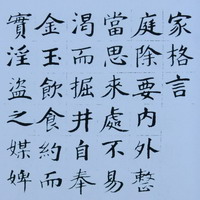 家格言
庭除要内外整
當思來處不易
渴而掘井自奉
金玉飲食約而
實淫盜之媒婢